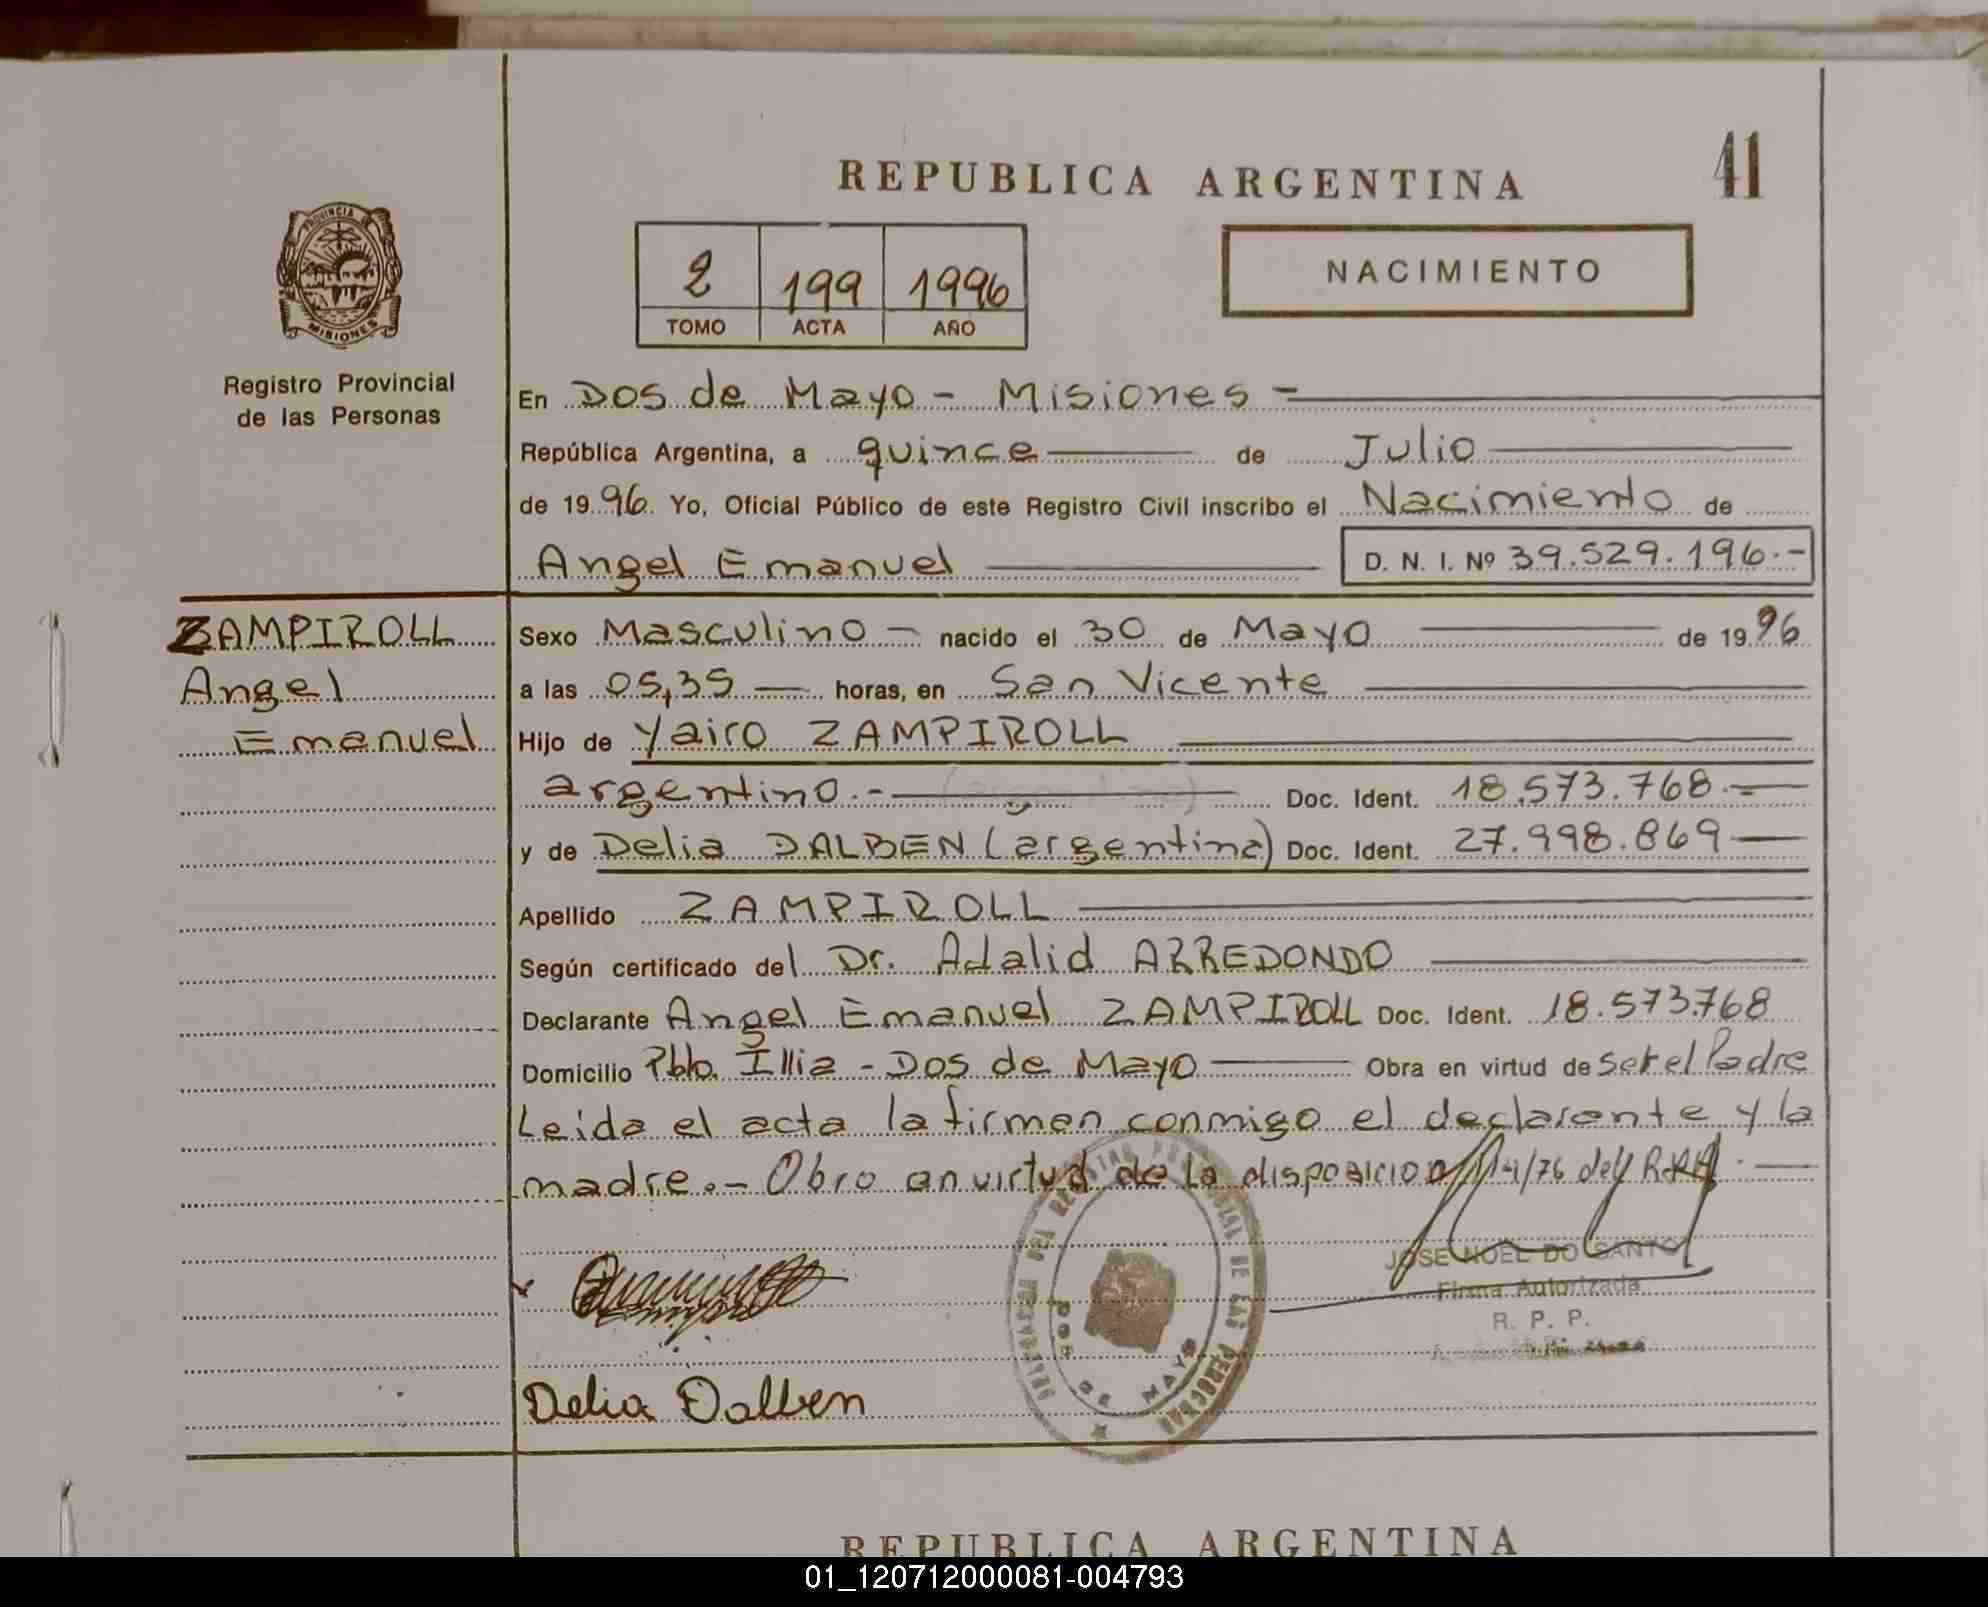 REPUBLICA ARGENTINA
41
PROVINCIA DE
MISIONES
Registro Provincial
de las Personas
2 199 1996
TOMO ACTA AÑO
NACIMIENTO
En Dos de Mayo - Misiones -
República Argentina, a quince de Julio
de 1996. Yo, Oficial Público de este Registro Civil inscribo el Nacimiento de
Angel Emanuel D. N. I. Nº 39.529.196.-
ZAMPIROLL
Angel
Emanuel
Sexo Masculino - nacido el 30 de Mayo de 1996
a las 05,35 horas, en San Vicente
Hijo de Yairo ZAMPIROLL
argentino.- Doc. Ident. 18.573.768.-
y de Delia DALBEN (argentina) Doc. Ident. 27.998.869
Apellido ZAMPIROLL
Según certificado del Dr. Adalid ARREDONDO
Declarante Angel Emanuel ZAMPIROLL Doc. Ident. 18.573.768
Domicilio Pblo. Illia - Dos de Mayo Obra en virtud de ser el Padre
Leida el acta la firman conmigo el declarante y la
madre.- Obro en virtud de la disposicion /76 del
JOSE NOEL DO SANTO
Firma Autorizada
R. P. P.
DELEGACION DEL REGISTRO PROVINCIAL DE LAS PERSONAS
DOS DE MAYO
Delia Dalben
REPUBLICA ARGENTINA
01_120712000081-004793